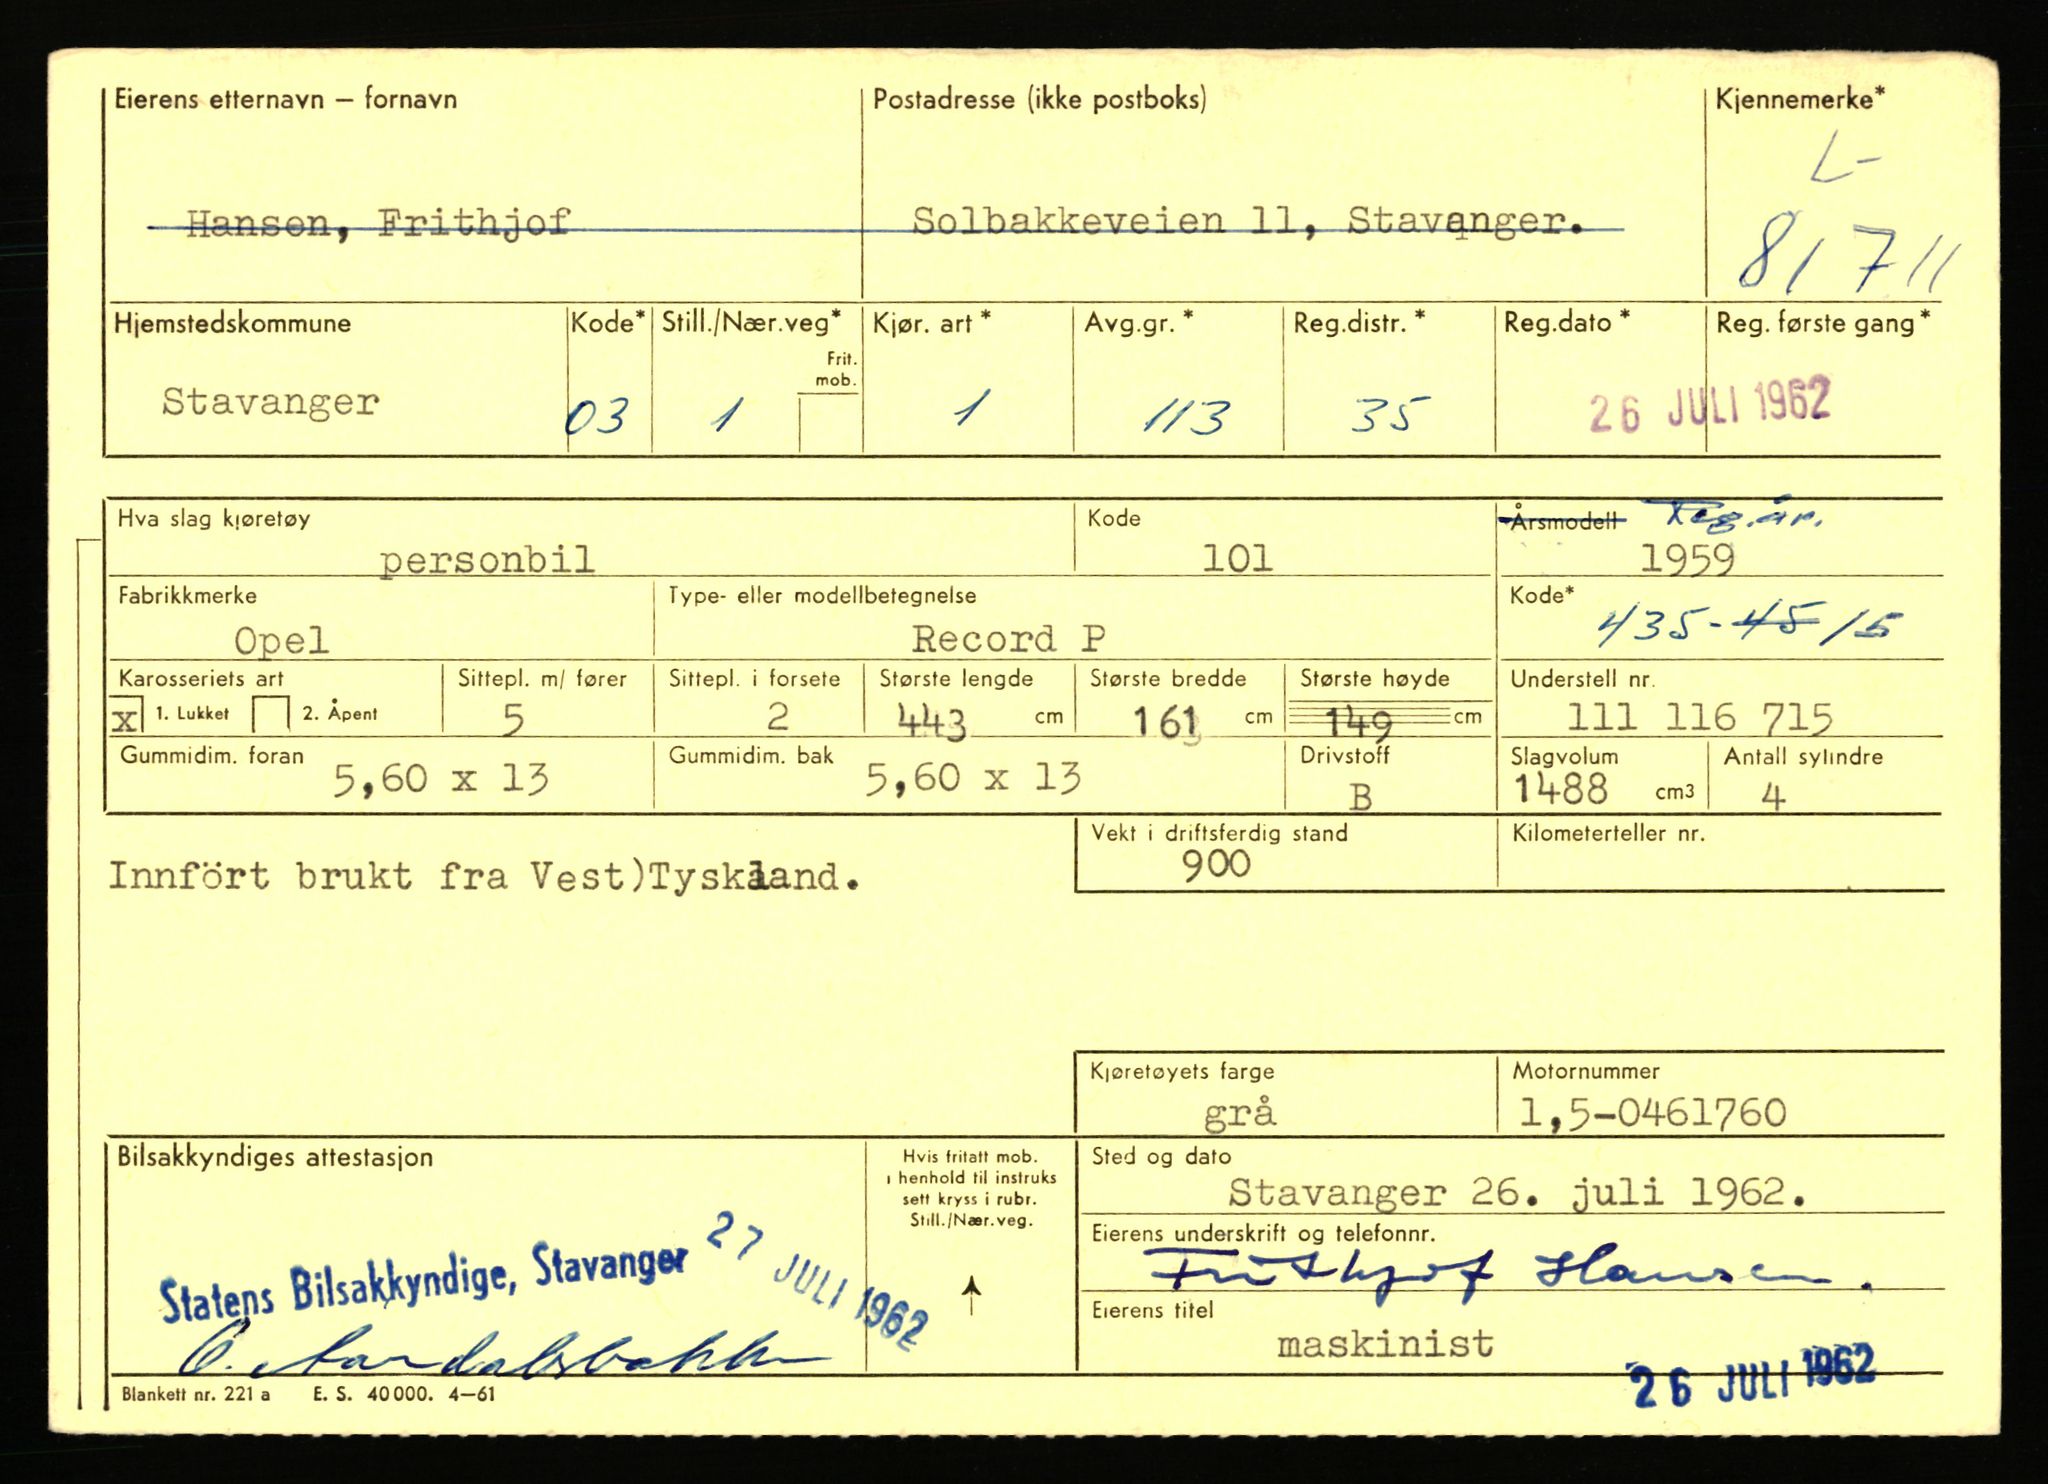 Eierens etternavn – fornavn Postadresse (ikke postboks) Kjennemerke*
L-
Hansen, Frithjof Solbakkeveien 11, Stavanger.
81711
Hjemstedskommune Kode* Still./Nær.veg* Kjør. art * Avg.gr. * Reg.distr. * Reg.dato * Reg. første gang *
Frit.
mob.
Stavanger 03 1 1 113 35 26 JULI 1962
Hva slag kjøretøy Kode Årsmodell Reg.år.
personbil 101 1959
Fabrikkmerke Type- eller modellbetegnelse Kode*
Opel Record P 435-45 15
Karosseriets art Sittepl. m/ fører Sittepl. i forsete Største lengde Største bredde Største høyde Understell nr.
x 1. Lukket 2. Åpent 5 2 443 cm 161 cm 149 cm 111 116 715
Gummidim. foran Gummidim. bak Drivstoff Slagvolum Antall sylindre
5,60 x 13 5,60 x 13 B 1488 cm3 4
Vekt i driftsferdig stand Kilometerteller nr.
900
Innfört brukt fra Vest)Tyskland.
Kjøretøyets farge Motornummer
grå 1,5-0461760
Bilsakkyndiges attestasjon Hvis fritatt mob. Sted og dato
i henhold til instruks
sett kryss i rubr.
Still./Nær.veg.
Stavanger 26. juli 1962.
Eierens underskrift og telefonnr.
Frithjof Hansen.
Statens Bilsakkyndige, Stavanger 27 JULI 1962
Eierens titel
maskinist
26 JULI 1962
Blankett nr. 221 a E. S. 40 000. 4–61